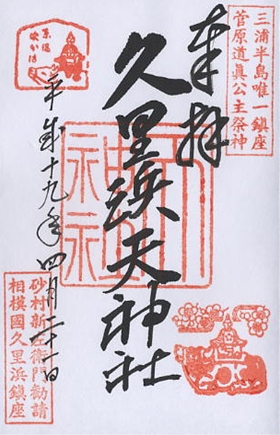 三浦半島唯一鎮座
菅原道真公主祭神
奉拝
久里浜天神社
平成十九年四月二十一日
砂村新左衛門勧請
相模國久里浜鎮座